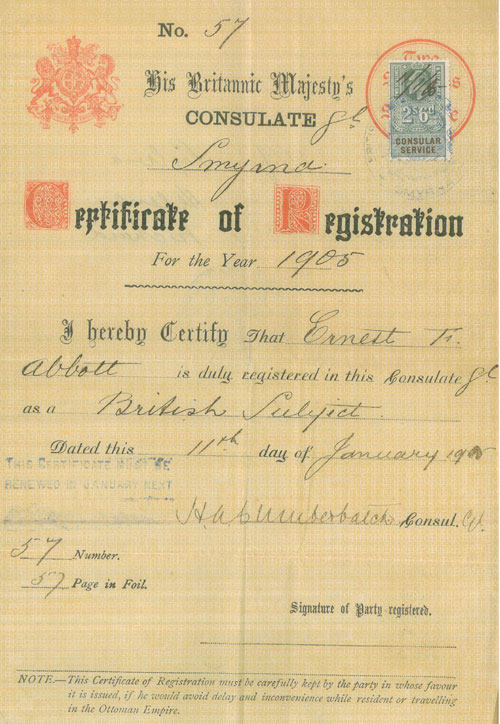 No. 57
His Britannic Majesty's
CONSULATE Gl.
Smyrna
Certificate of Registration
For the Year 1905
I hereby Certify That Ernest F.
Abbott is duly registered in this Consulate Gl.
as a British Subject.
Dated this 11th day of January 1905
THIS CERTIFICATE MUST BE
RENEWED IN JANUARY NEXT
H A Cumberbatch Consul, Gl.
57 Number.
57 Page in Foil.
Signature of Party registered.
NOTE.—This Certificate of Registration must be carefully kept by the party in whose favour
it is issued, if he would avoid delay and inconvenience while resident or travelling
in the Ottoman Empire.
2s6d
CONSULAR
SERVICE